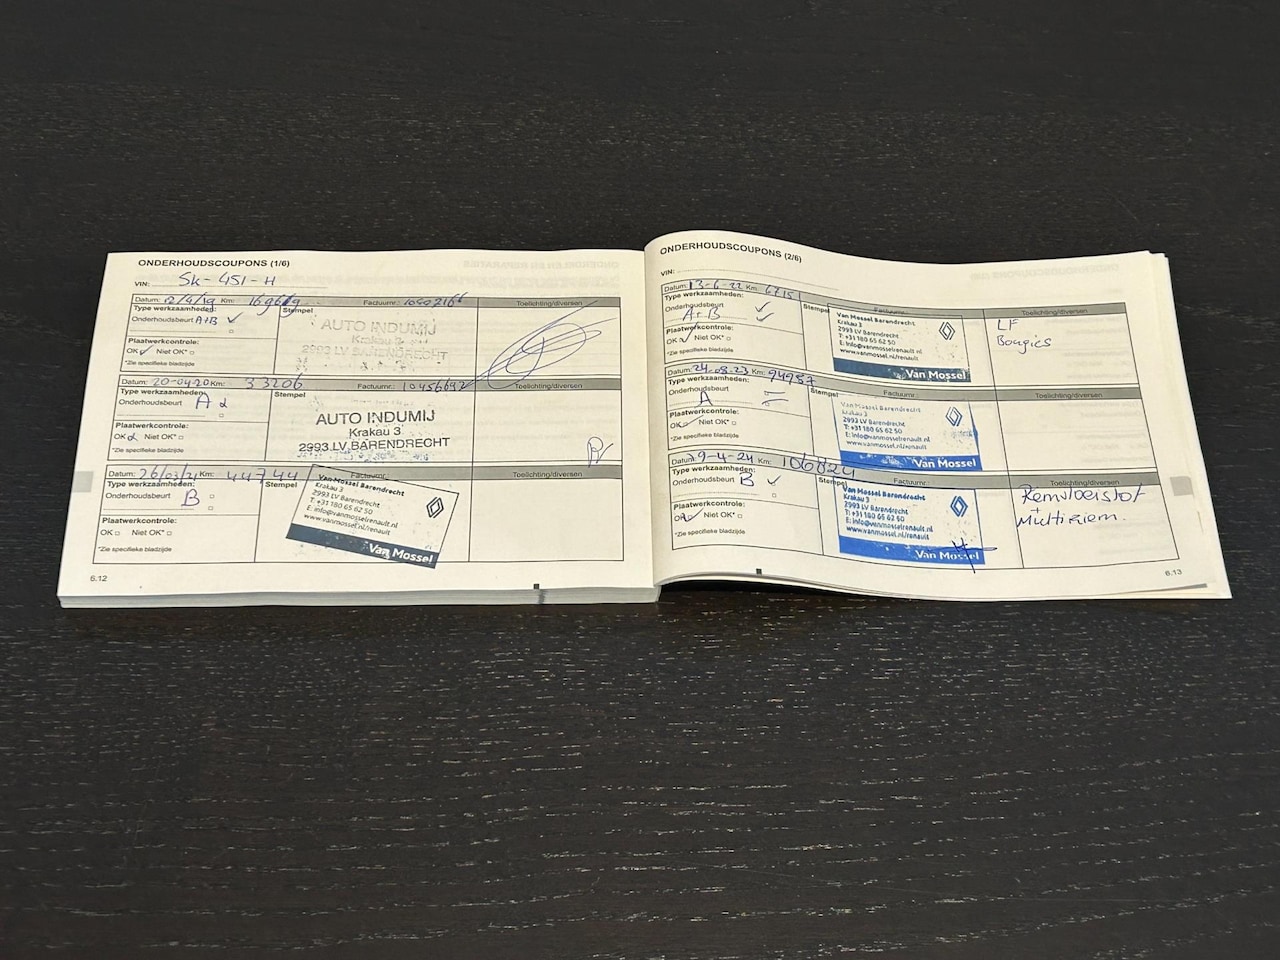 ONDERHOUDSCOUPONS (1/6)
VIN: SK-451-H
Datum: 12/4/19 Km: Factuurnr.: Toelichting/diversen
Type werkzaamheden: Stempel
Onderhoudsbeurt A+B
Plaatwerkcontrole:
OK Niet OK*
*Zie specifieke bladzijde
AUTO INDUMIJ
Krakau 3
2993 LV BARENDRECHT
Datum: 20-04-20 Km: 33206 Factuurnr.: 10456692 Toelichting/diversen
Type werkzaamheden: Stempel
Onderhoudsbeurt A
Plaatwerkcontrole:
OK Niet OK*
*Zie specifieke bladzijde
AUTO INDUMIJ
Krakau 3
2993 LV BARENDRECHT
Datum: 26/03/21 Km: 44744 Factuurnr.: Toelichting/diversen
Type werkzaamheden: Stempel
Onderhoudsbeurt B
Plaatwerkcontrole:
OK Niet OK*
*Zie specifieke bladzijde
Van Mossel Barendrecht
Krakau 3
2993 LV Barendrecht
T: +31 180 65 62 50
E: info@vanmosselrenault.nl
www.vanmossel.nl/renault
Van Mossel
6.12
ONDERHOUDSCOUPONS (2/6)
VIN:
Datum: 13-6-22 Km: Factuurnr.: Toelichting/diversen
Type werkzaamheden: Stempel
Onderhoudsbeurt A+B
Plaatwerkcontrole:
OK Niet OK*
*Zie specifieke bladzijde
Van Mossel Barendrecht
Krakau 3
2993 LV Barendrecht
T: +31 180 65 62 50
E: info@vanmosselrenault.nl
www.vanmossel.nl/renault
Van Mossel
LF
Bougies
Datum: 24-08-23 Km: 94987 Factuurnr.: Toelichting/diversen
Type werkzaamheden: Stempel
Onderhoudsbeurt A
Plaatwerkcontrole:
OK Niet OK*
*Zie specifieke bladzijde
Van Mossel Barendrecht
Krakau 3
2993 LV Barendrecht
T: +31 180 65 62 50
E: info@vanmosselrenault.nl
www.vanmossel.nl/renault
Van Mossel
Datum: 29-4-24 Km: 106824 Factuurnr.: Toelichting/diversen
Type werkzaamheden: Stempel
Onderhoudsbeurt B
Plaatwerkcontrole:
OK Niet OK*
*Zie specifieke bladzijde
Van Mossel Barendrecht
Krakau 3
2993 LV Barendrecht
T: +31 180 65 62 50
E: info@vanmosselrenault.nl
www.vanmossel.nl/renault
Van Mossel
Remvloeistof
+
Multiriem.
6.13